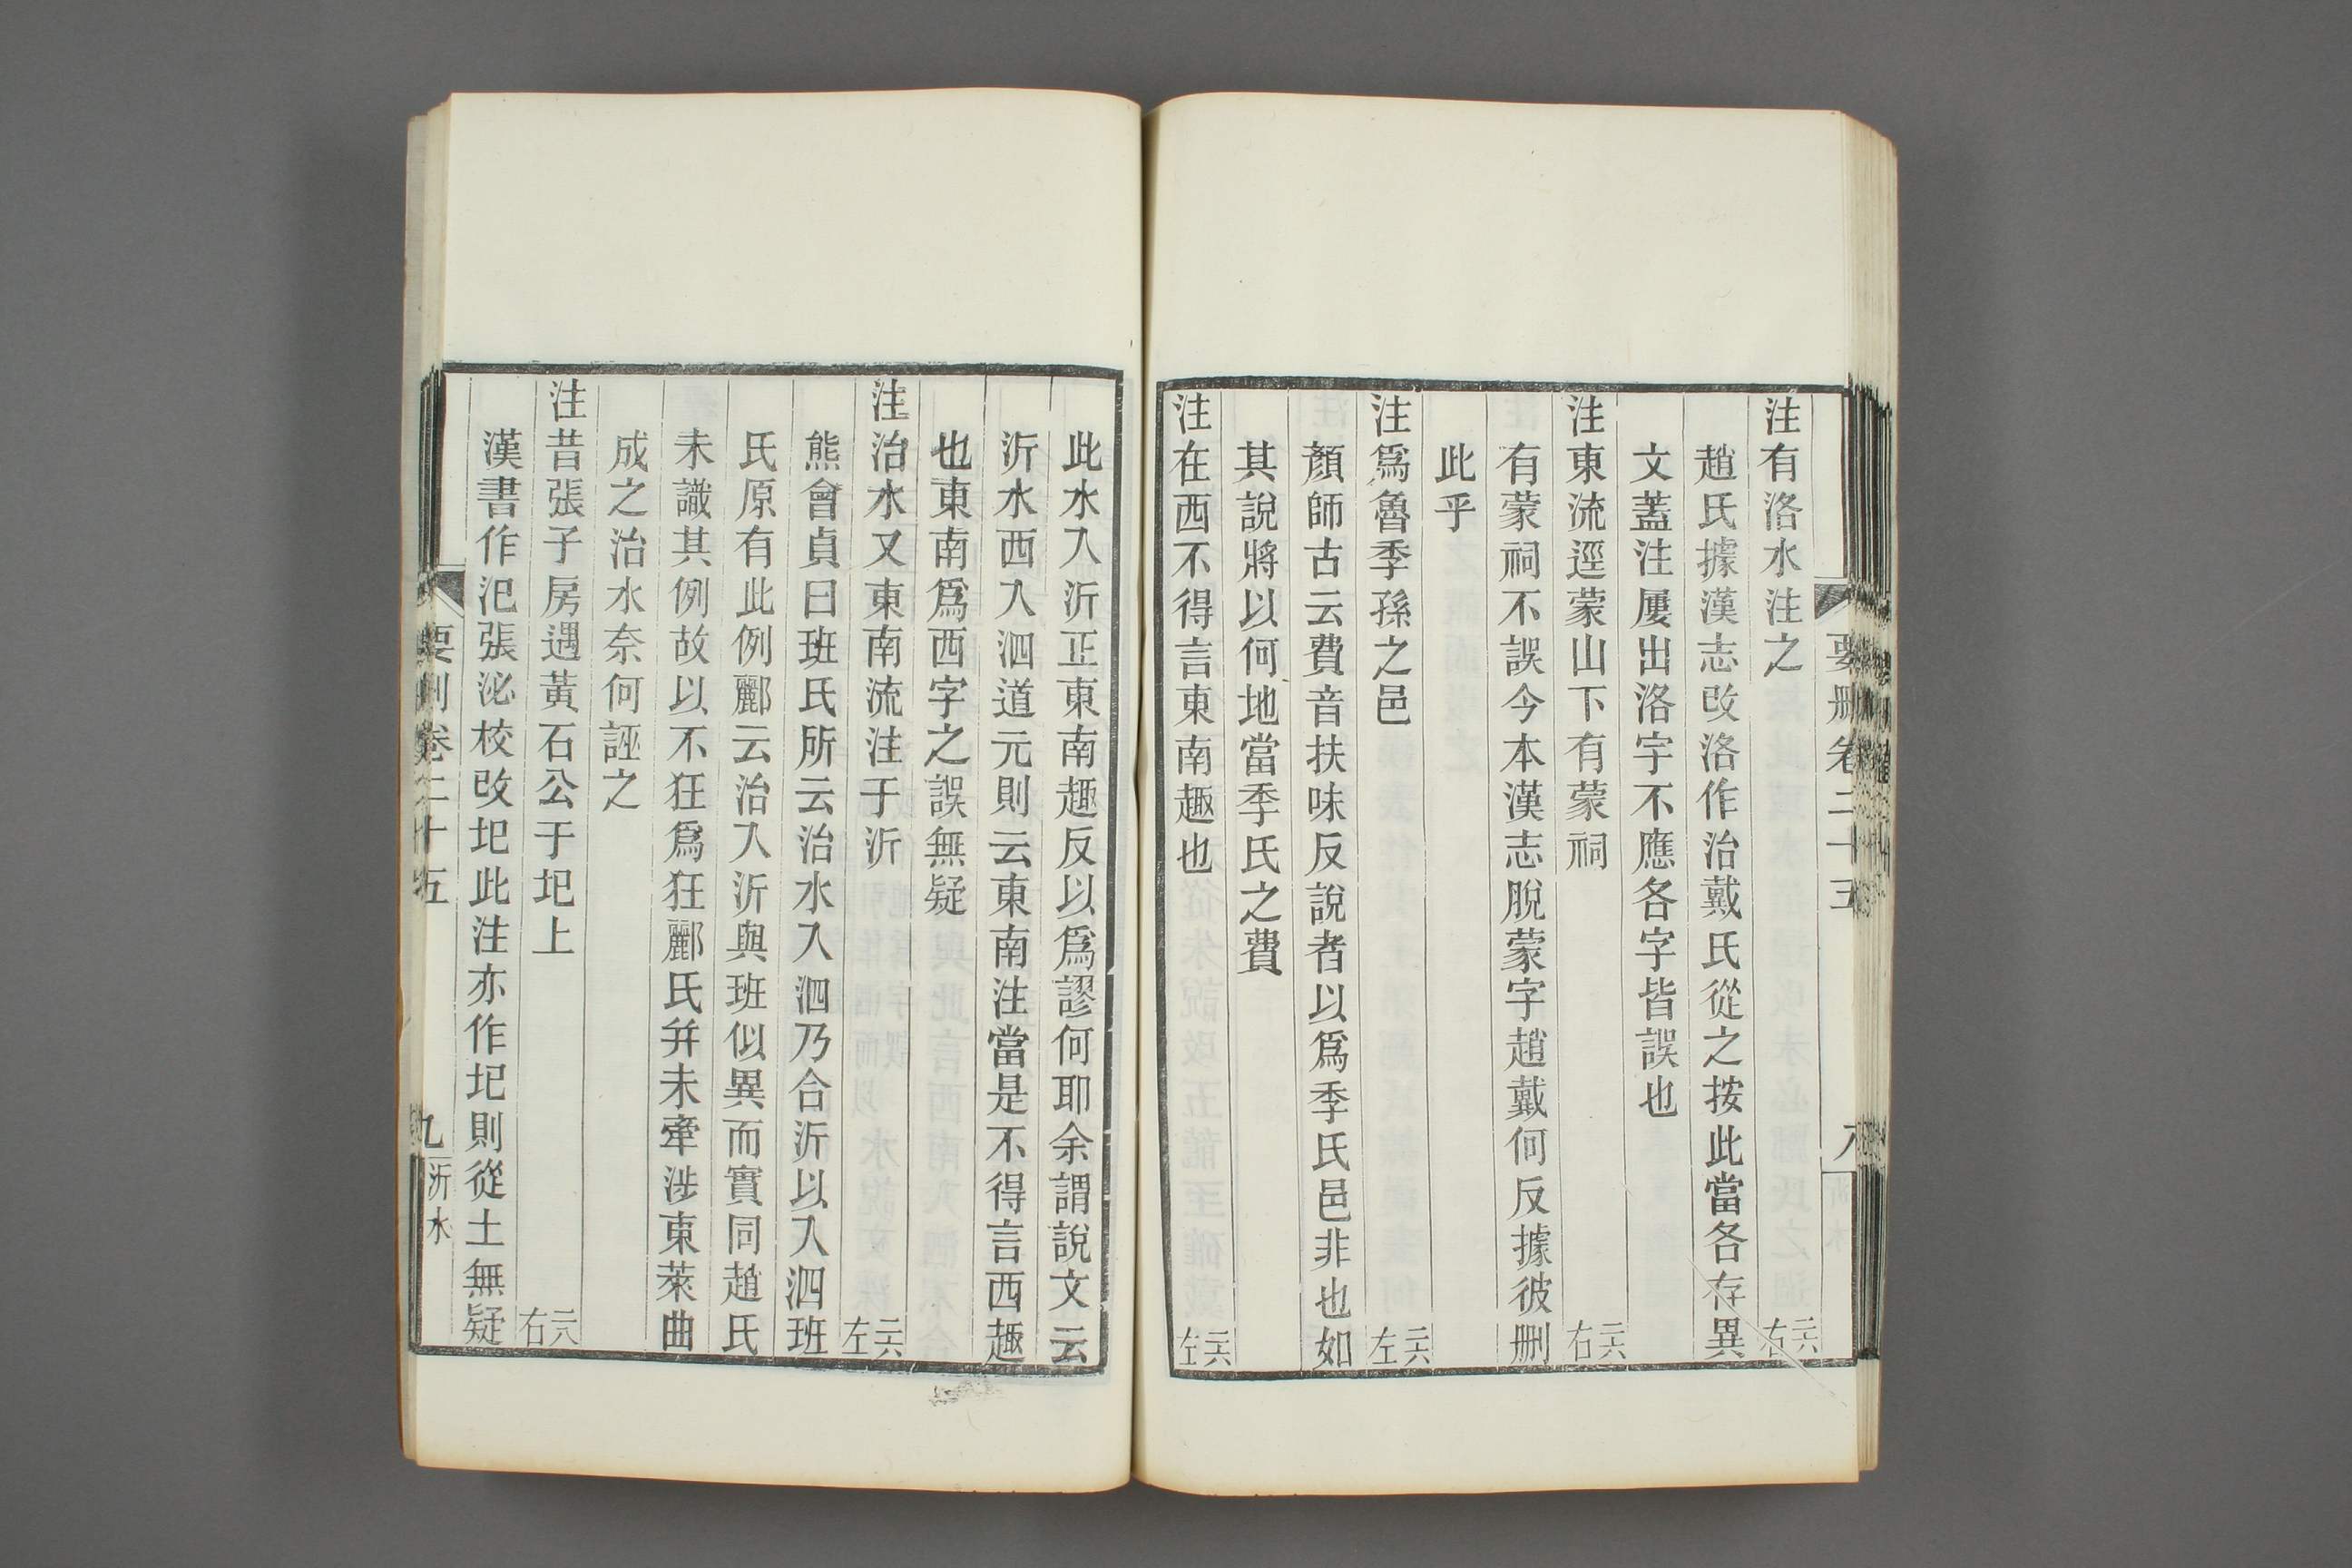 要刪卷二十五 八 沂水
注有洛水注之 二六右
趙氏據漢志改洛作治戴氏從之按此當各存異
文蓋注屢出洛字不應各字皆誤也
注東流逕蒙山下有蒙祠 二六右
有蒙祠不誤今本漢志脫蒙字趙戴何反據彼刪
此乎
注爲魯季孫之邑 二六左
顏師古云費音扶味反說者以爲季氏邑非也如
其說將以何地當季氏之費
注在西不得言東南趣也 二六左
此水入沂正東南趣反以爲謬何耶余謂說文云
沂水西入泗道元則云東南注當是不得言西趣
也東南爲西字之誤無疑
注治水又東南流注于沂 二六左
熊會貞曰班氏所云治水入泗乃合沂以入泗班
氏原有此例酈云治入沂與班似異而實同趙氏
未識其例故以不狂爲狂酈氏幷未牽涉東萊曲
成之治水奈何誣之
注昔張子房遇黃石公于圯上 二八右
漢書作汜張泌校改圯此注亦作圯則從土無疑
要刪卷二十五 九 沂水